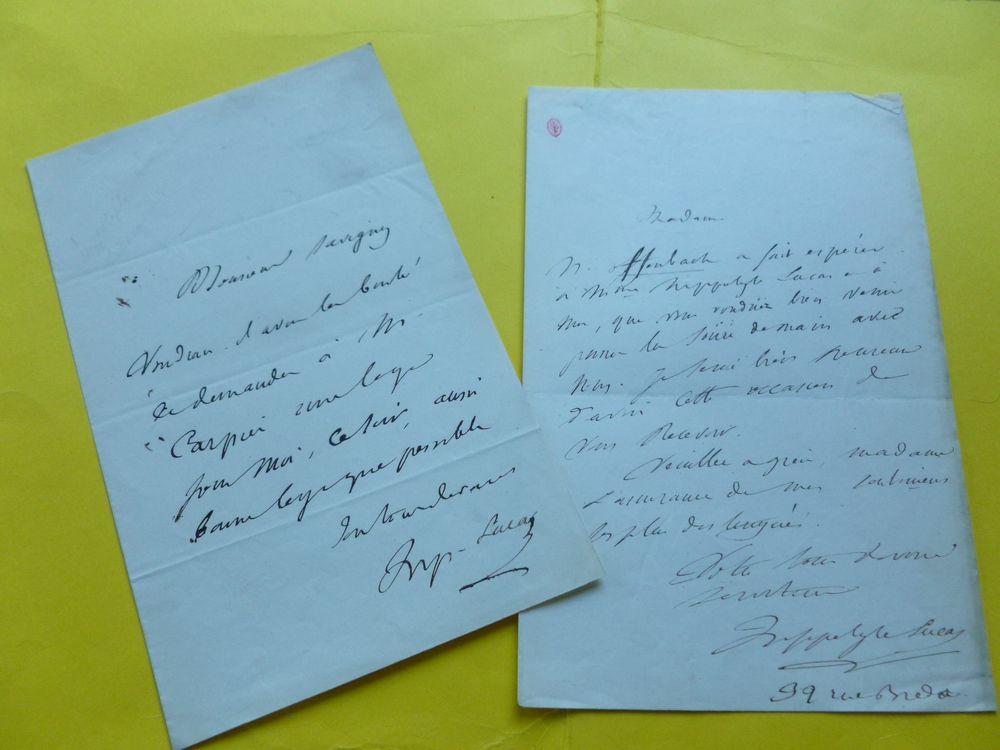 Monsieur Savigny
Voudrai-il avoir la bonté
de demander à M.
Carpier une loge
pour moi, ce soir, aussi
bonne loge que possible
Hyp. Lucas
Madame
M. offenbach a fait espérer
à Mme hippolyte Lucas et à
moi, que vous voudriez bien venir
passer la soirée demain avec
nous. je serai très heureux
d'avoir cette occasion de
vous recevoir.
Veuillez agréer, madame
l'assurance de mes sentimens
les plus distingués.
Votre tout dévoué
serviteur
hippolyte Lucas
39 rue Breda